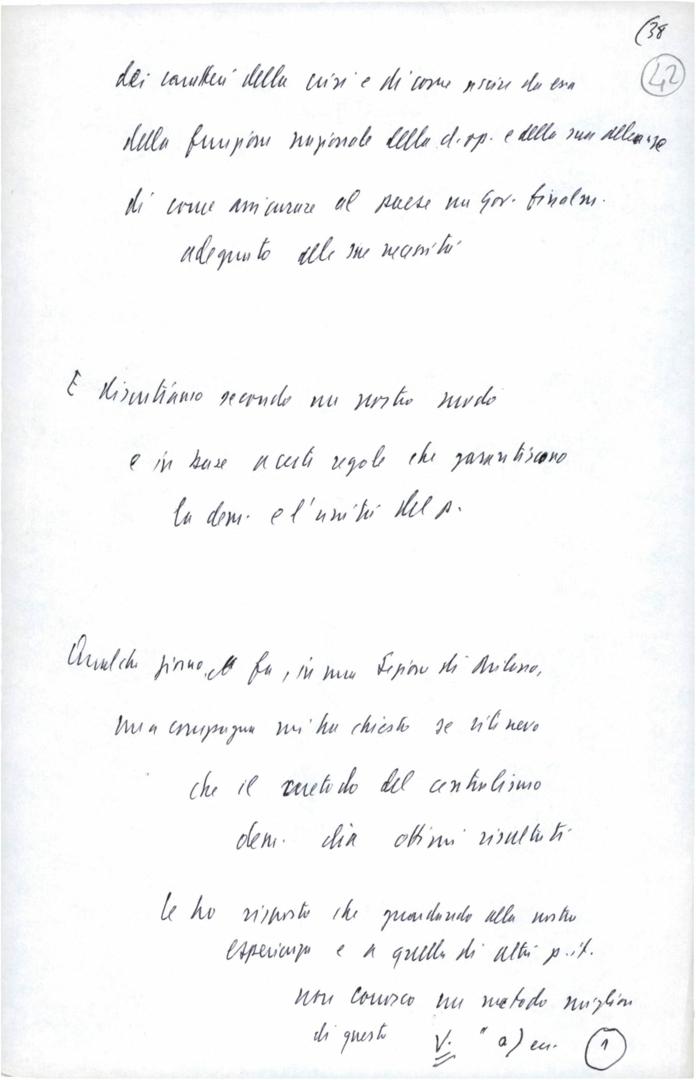 (38
42
dei caratteri della crisi e di come uscire da essa
della funzione nazionale della cl. op. e della sua alleanze
di come assicurare al paese un gov. finalm.
adeguato alle sue necessità
E discutiamo secondo un nostro modo
e in base a certe regole che garantiscono
la dem. e l'unità del p.
Qualche giorno fa, in una Sezione di Milano,
una compagna mi ha chiesto se ritenevo
che il metodo del centralismo
dem. dia ottimi risultati
le ho risposto che guardando alla nostra
esperienza e a quella di altri p. it.
non conosco un metodo migliore
di questo V. " a) 1